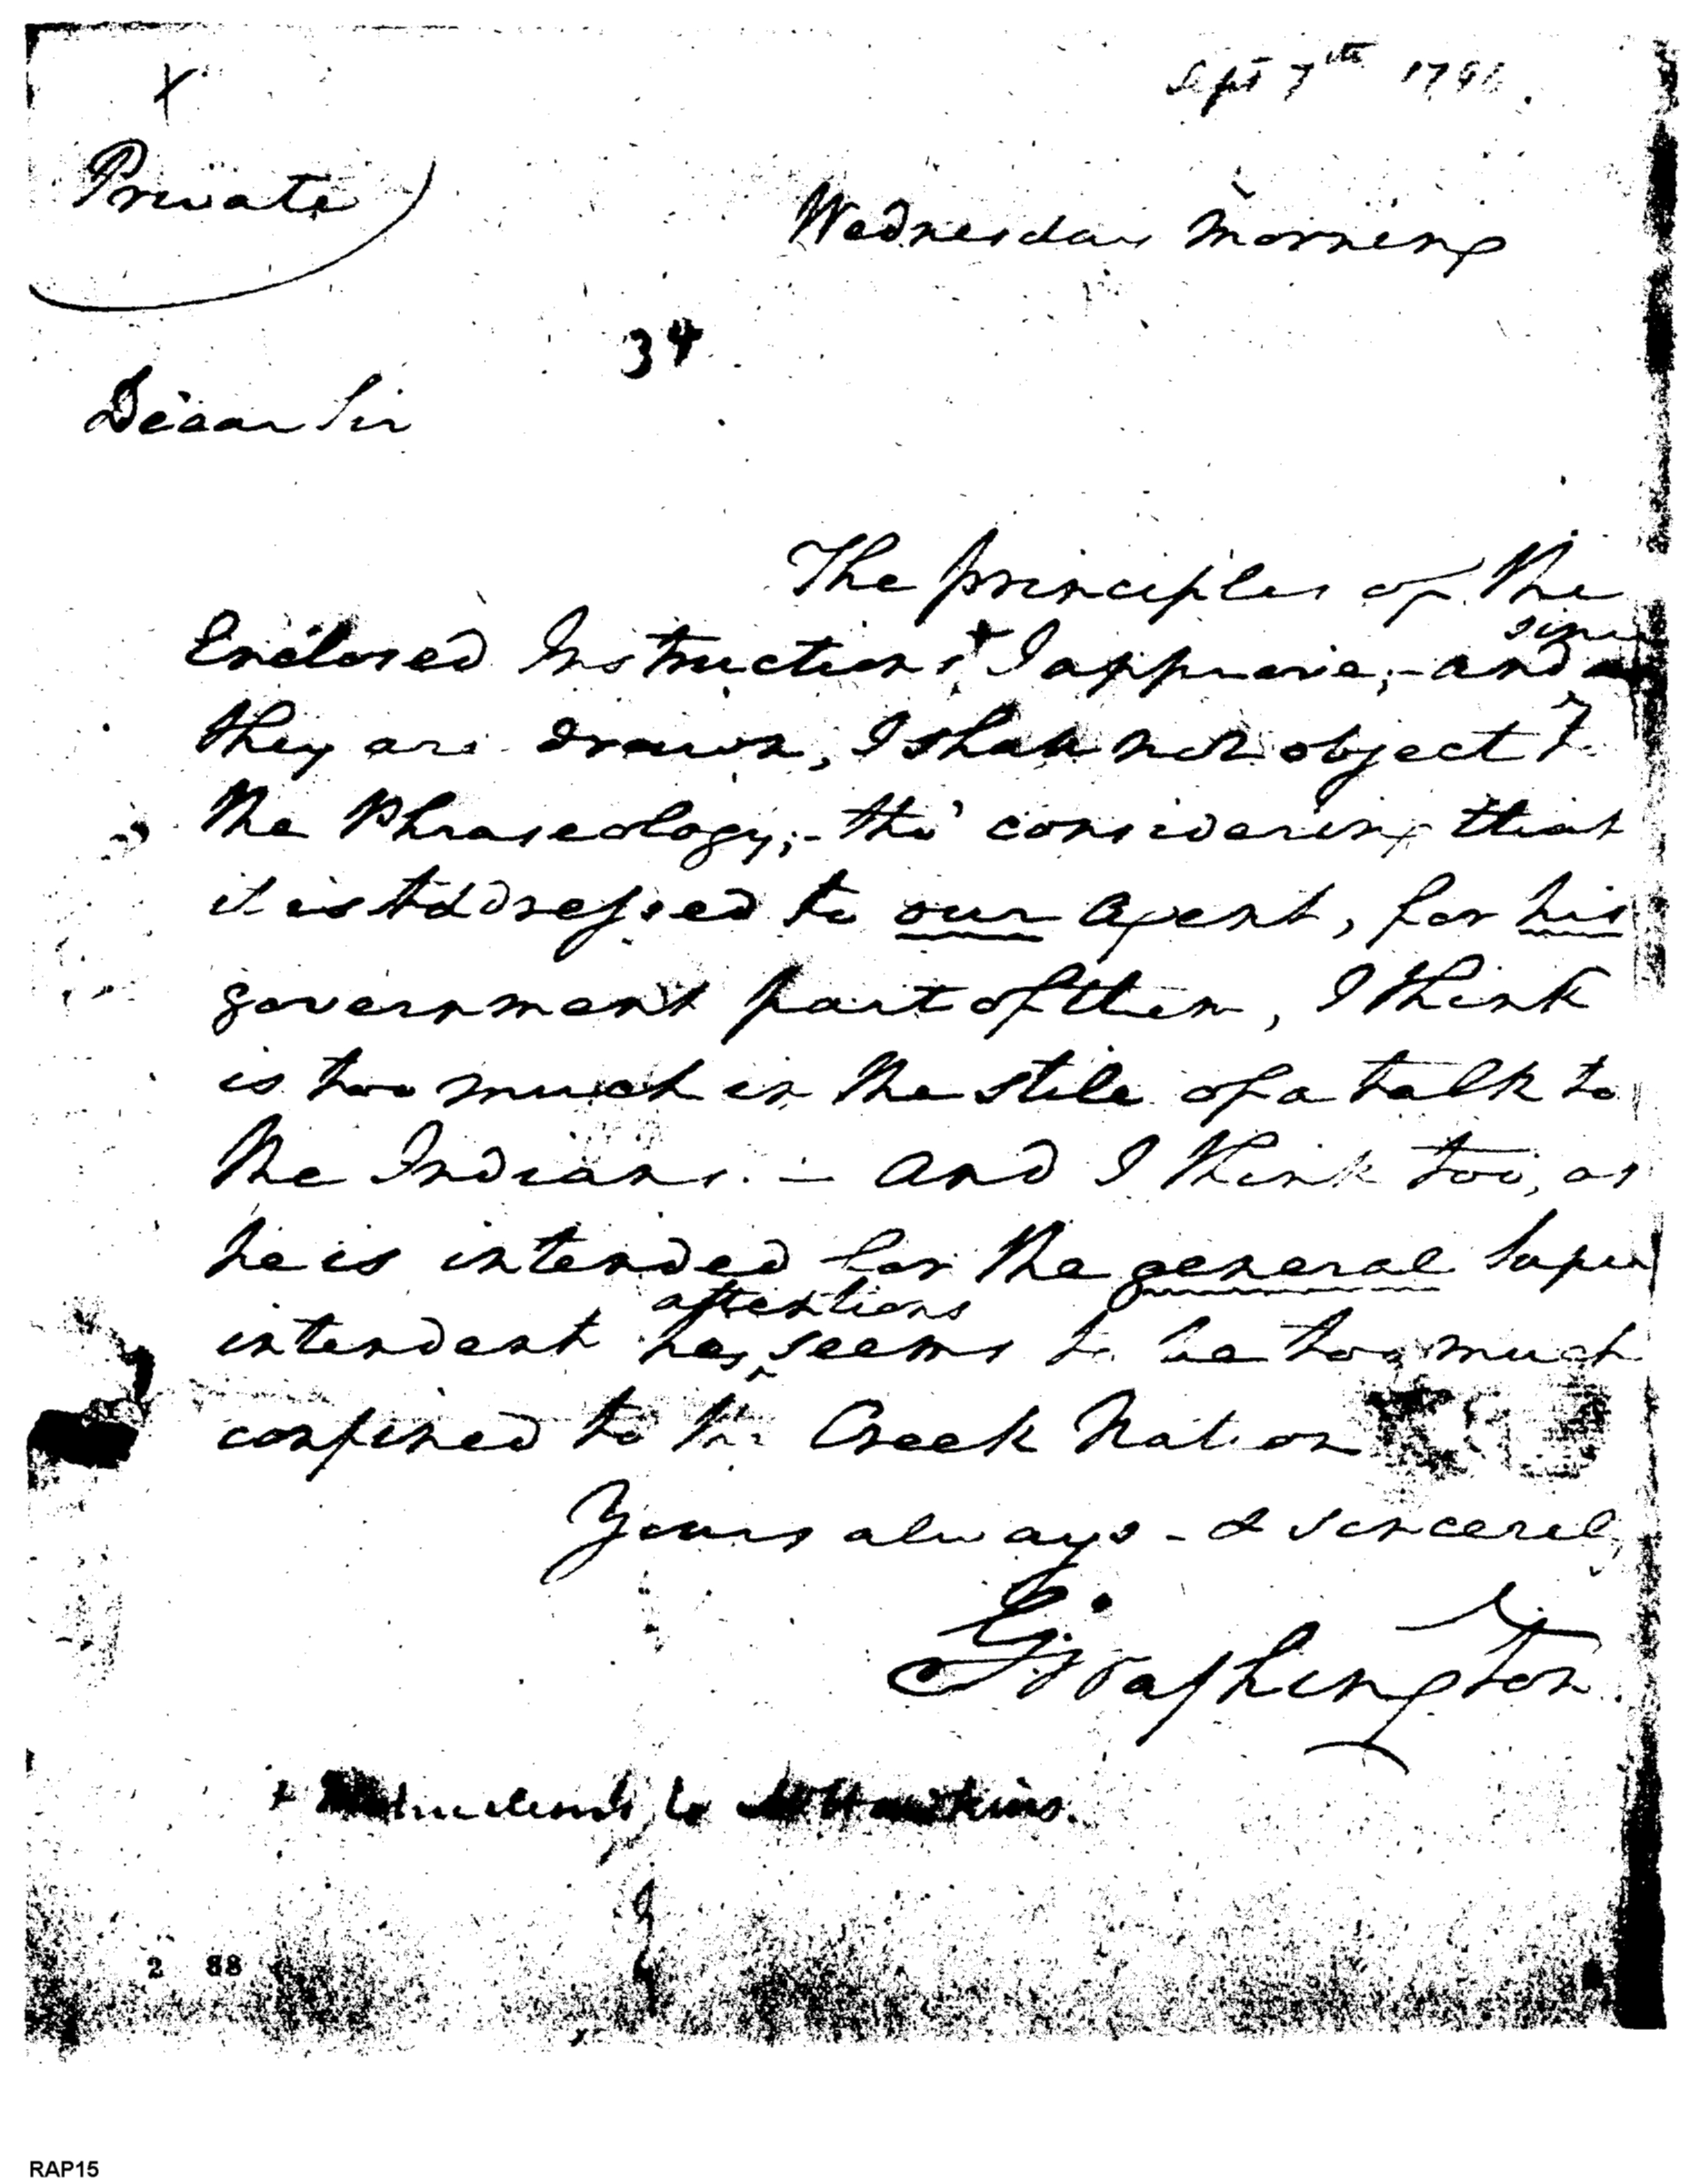 X
Sept 7th 1796.
Private
Wednesday Morning
34
Dear Sir
The principles of the
since
Enclosed Instructions + I approve;- and
they are drawn, I shall not object to
the Phraseology;- tho' considering that
it is Addressed to our Agent, for his
government part of them, I think
is too much in the stile of a talk to
the Indians. – And I think too, as
he is intended for the general Super
attentions
intendent his ‸ seems to be too much
confined to the Creek Nation
Yours always - & sincerely
G: Washington
+ to Hawkins.
2 88
RAP15